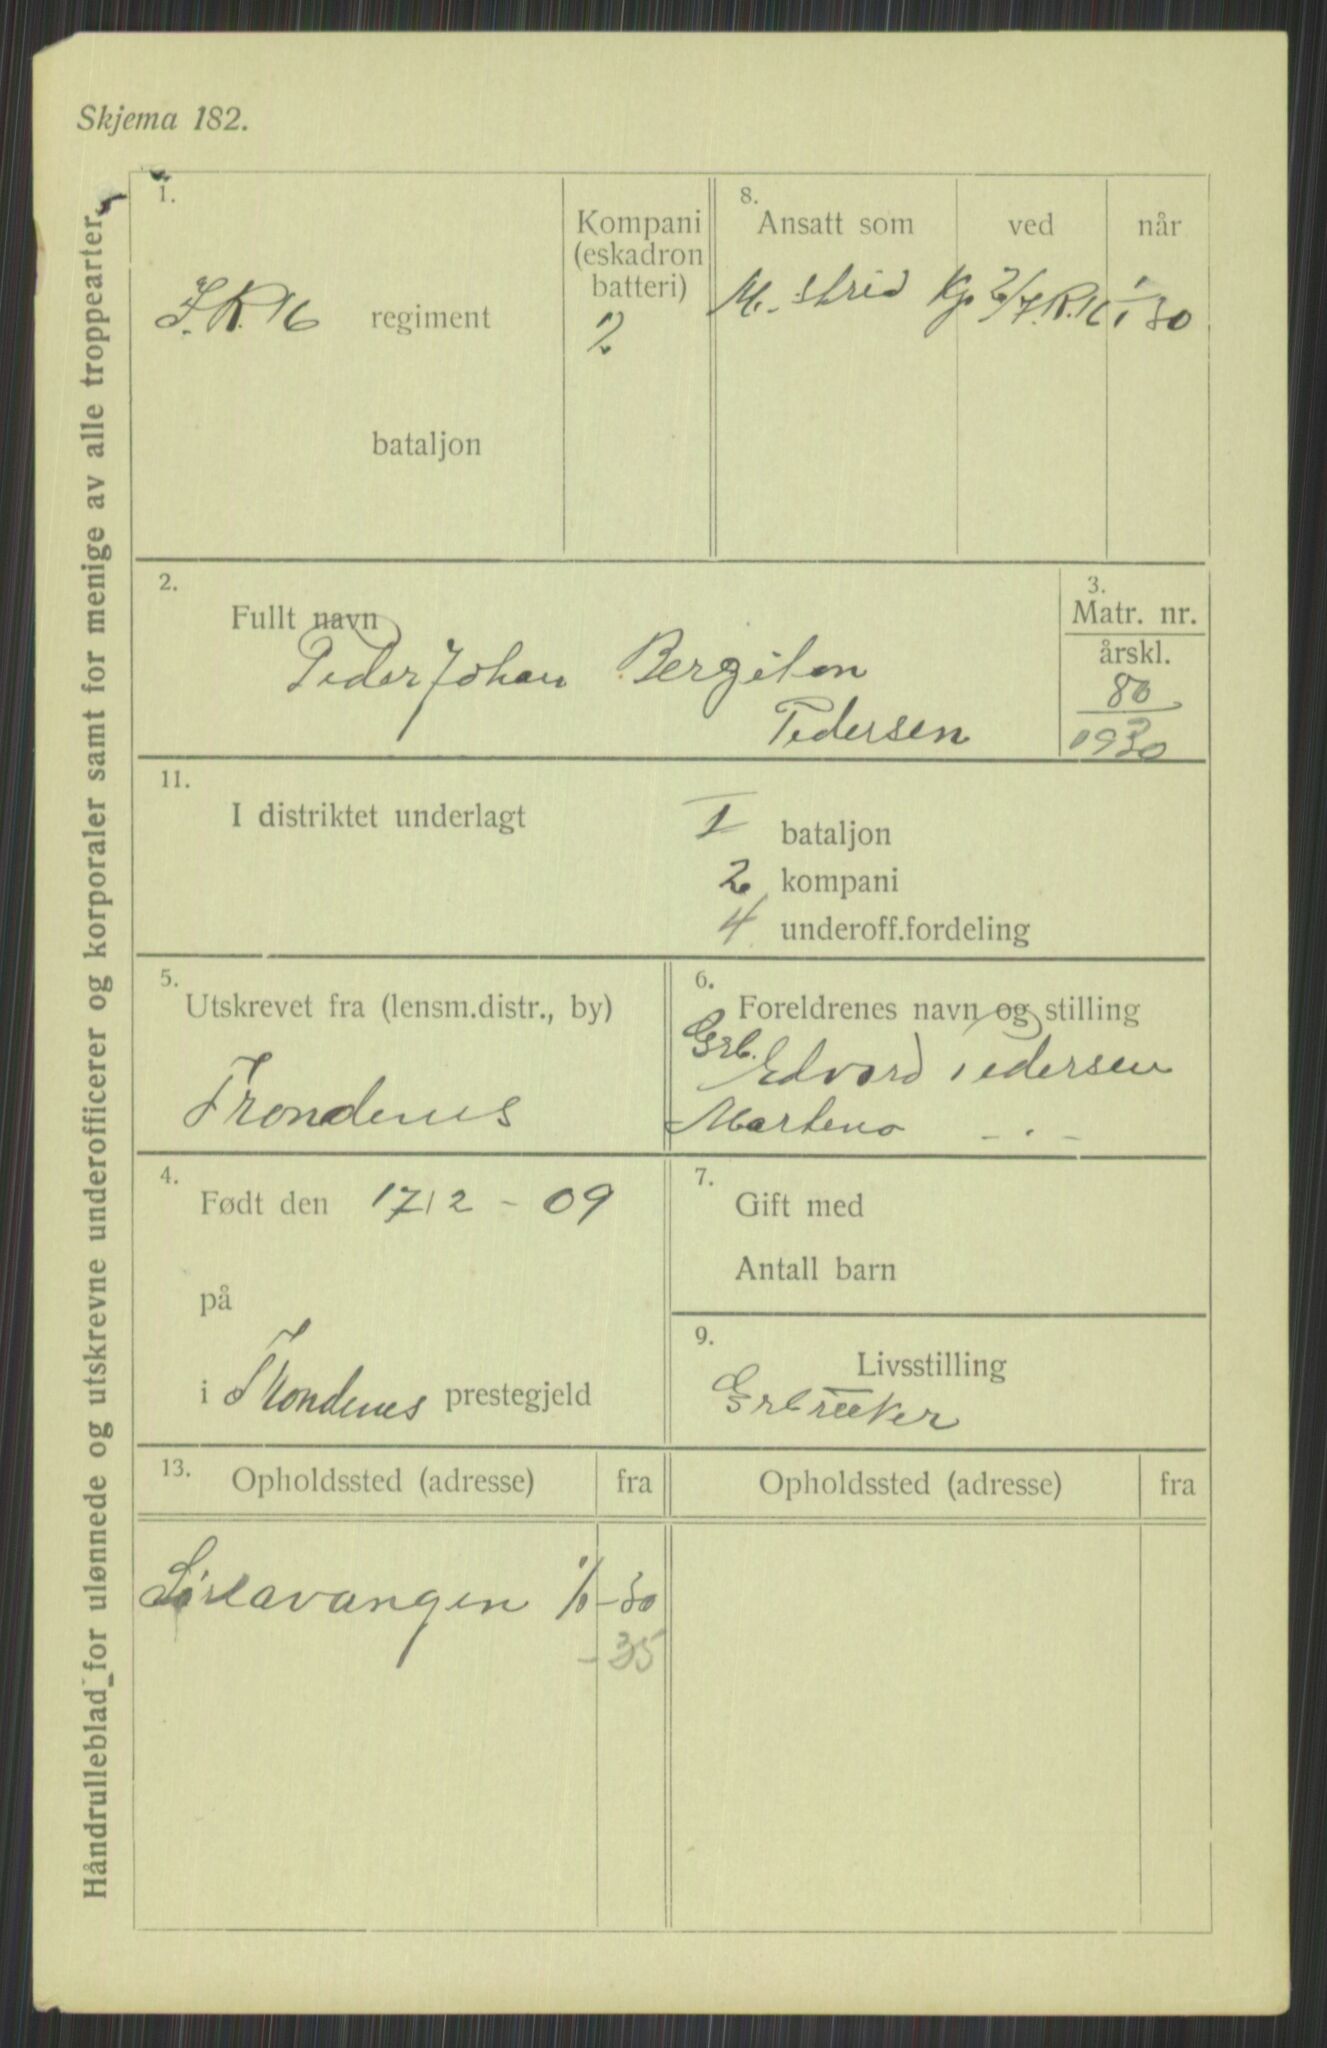 Skjema 182.
Håndrulleblad for ulønnede og utskrevne underofficerer og korporaler samt for menige av alle troppearter.
1.
I.R. 16 regiment
bataljon
Kompani
(eskadron
batteri)
2
8.
Ansatt som ved når
M. strid Kp 2/I.R.16 1/1 30
2.
Fullt navn
Peder Johan Bergiton
Pedersen
3.
Matr. nr.
årskl.
80
1930
11.
I distriktet underlagt
I bataljon
2 kompani
4 underoff.fordeling
5.
Utskrevet fra (lensm.distr., by)
Trondenes
6.
Foreldrenes navn og stilling
Grb. Edvard Pedersen
Martena - . -
4.
Født den 17/2 - 09
på
i Trondenes prestegjeld
7.
Gift med
Antall barn
9.
Livsstilling
Grbruker
13.
Opholdssted (adresse) fra
Opholdssted (adresse) fra
Sørlavangen 1/1-30
- 35